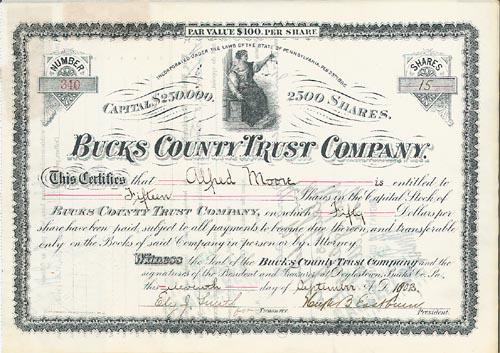 PAR VALUE $100. PER SHARE
INCORPORATED UNDER THE LAWS OF THE STATE OF PENNSYLVANIA
NUMBER
340
SHARES
15
CAPITAL $250,000. 2500 SHARES.
BUCKS COUNTY TRUST COMPANY.
This Certifies that Alfred Moore is entitled to
Fifteen Shares in the Capital Stock of
BUCKS COUNTY TRUST COMPANY, on which Fifty Dollars per
share have been paid, subject to all payments to become due thereon, and transferable
only on the Books of said Company in person or by Attorney.
Witness the Seal of the Bucks County Trust Company and the
signatures of the President and Treasurer at Doylestown, Bucks Co. Pa.
this day of September A.D.
Hugh B. Eastburn
TREASURER President.